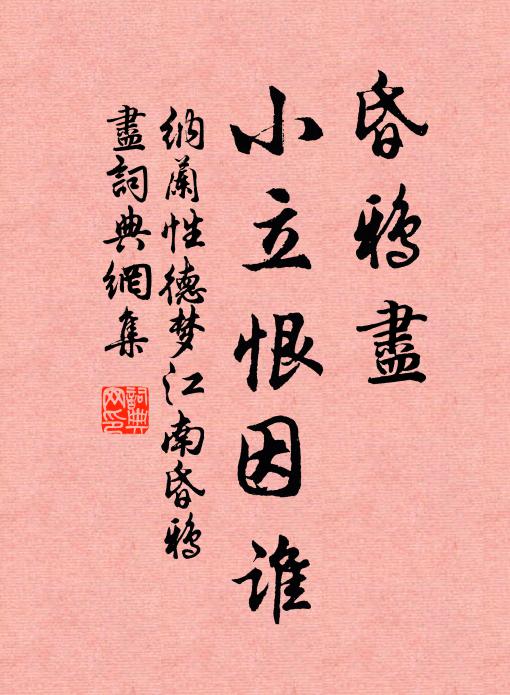 昏鴉盡
小立恨因誰
納蘭性德梦江南昏鴉
盡詞典網集
詞典
网印